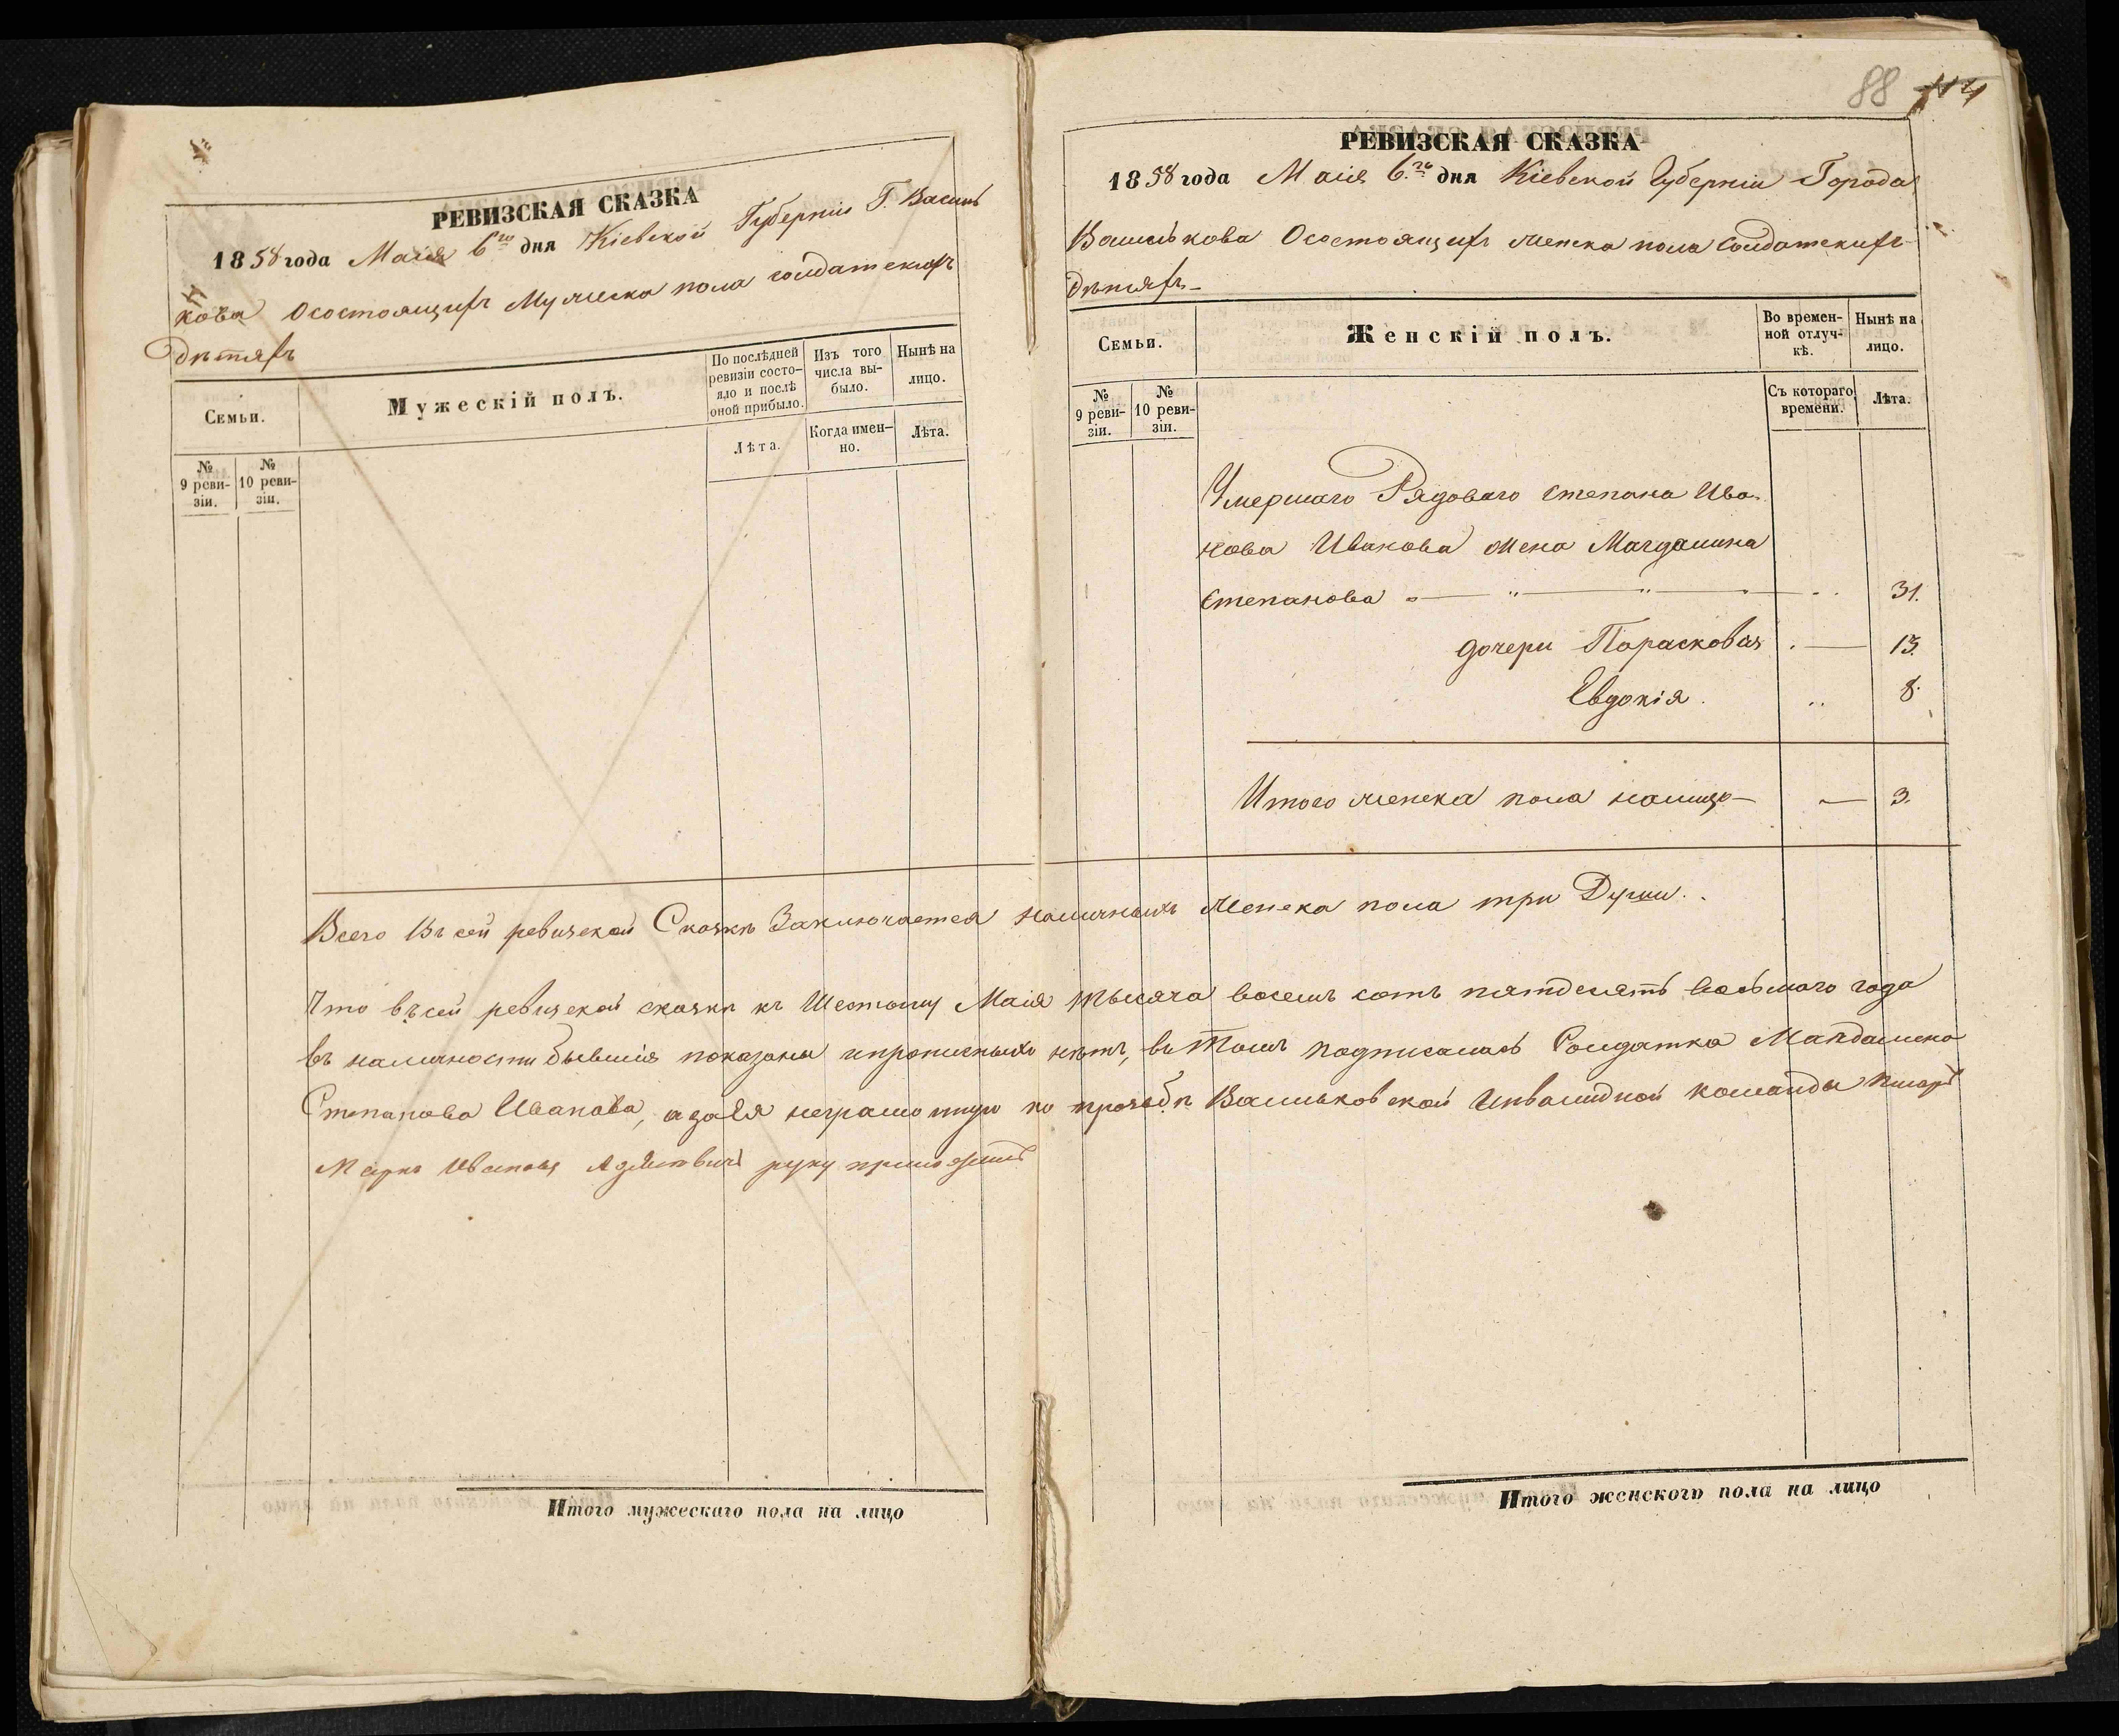 РЕВИЗСКАЯ СКАЗКА
1858 года Маія 6го дня Кіевской Губерніи Г. Василь
кова Осостоящихъ Мужеска пола солдатскихъ
Дѣтяхъ
Семьи.
Мужескій полъ.
По послѣдней ревизіи состояло и послѣ оной прибыло.
Изъ того числа выбыло.
Нынѣ на лицо.
№ 9 ревизіи.
№ 10 ревизіи.
Лѣта.
Когда именно.
Лѣта.
Итого мужескаго пола на лицо
88 114
РЕВИЗСКАЯ СКАЗКА
1858 года Маія 6.го дня Кіевской Губерніи Города
Василькова Осостоящихъ женска пола солдатскихъ
дѣтяхъ
Семьи.
Женскій полъ.
Во временной отлучкѣ.
Нынѣ на лицо.
№ 9 ревизіи.
№ 10 ревизіи.
Съ котораго времени.
Лѣта.
Умершаго Рядоваго Степана Ива
нова Иванова жена Магдалина
Степанова 31.
дочери Парасковья 13.
Евдокія. 8.
Итого женска пола налицо 3.
Всего Въ сей ревизской Сказкѣ Заключается наличныхъ женска пола три Души.
Что въ сей ревизской сказкѣ къ Шестому Маія тысяча восемь сотъ пятдесятъ восьмаго года
въ наличности бывшія показаны ипрописныхъ нѣтъ, въ Томъ подписалась Солдатка Макдалена
Степанова Иванова, а за Ея неграмотную по прозбѣ Васильковской Инвалидной команды писарь
Марко Ивановъ руку приложилъ
Итого женскаго пола на лицо